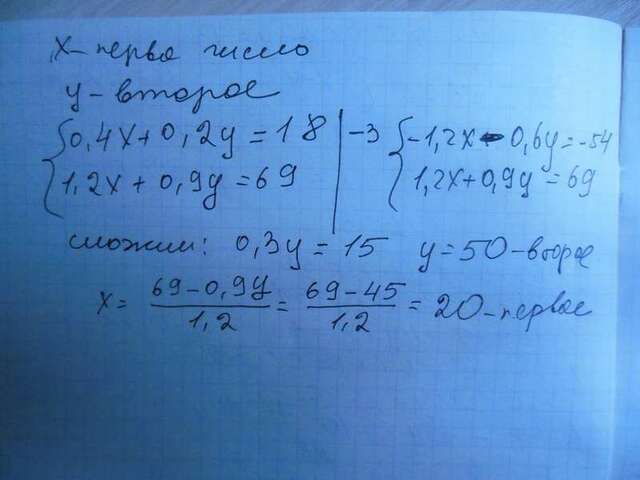 x - перво число
y - второе
{ 0,4x + 0,2y = 18 | -3 { -1,2x - 0,6y = -54
1,2x + 0,9y = 69 | 1,2x + 0,9y = 69
сложим: 0,3y = 15 y = 50 - второе
x = (69 - 0,9y)/1,2 = (69 - 45)/1,2 = 20 - первое